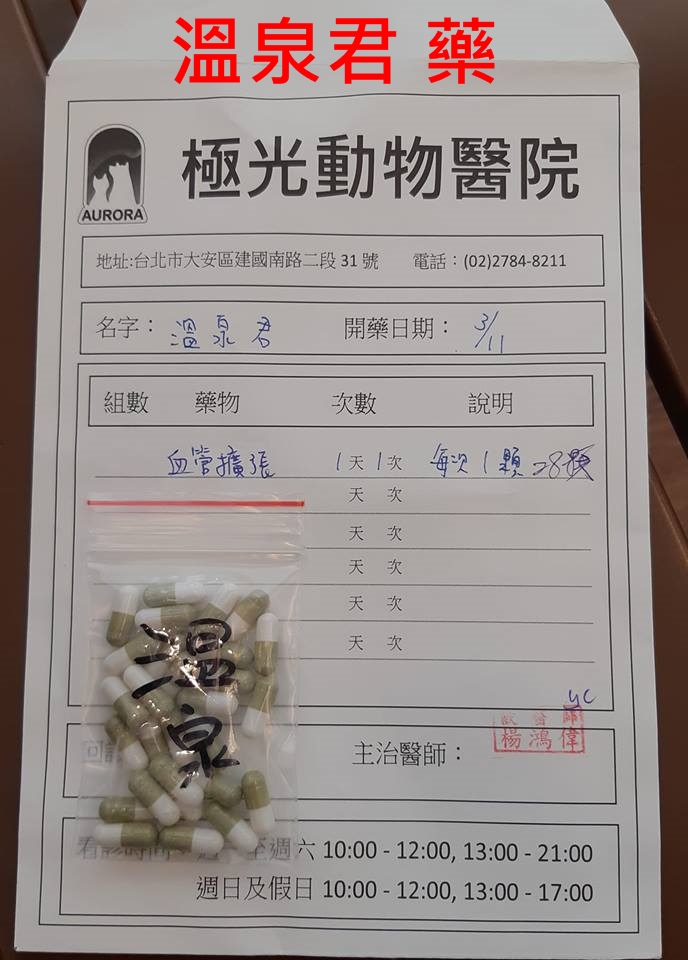 溫泉君 藥
極光動物醫院
AURORA
地址:台北市大安區建國南路二段 31 號 電話：(02)2784-8211
名字： 溫泉君 開藥日期： 3/11
組數 藥物 次數 說明
血管擴張 1 天 1 次 每次 1 顆 28顆
天 次
天 次
天 次
天 次
天 次
溫泉
yc
獸醫師
楊鴻偉
回診
主治醫師：
看診時間 至週六 10:00 - 12:00, 13:00 - 21:00
週日及假日 10:00 - 12:00, 13:00 - 17:00